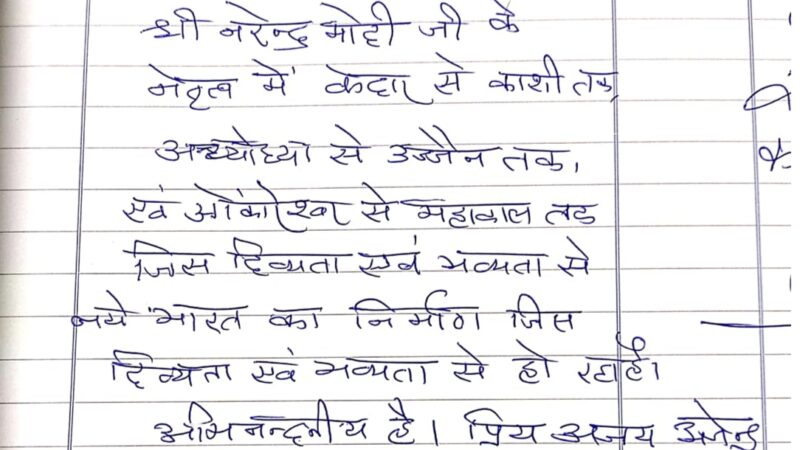 श्री नरेन्द्र मोदी जी के
नेतृत्व में केदार से काशी तक,
अयोध्या से उज्जैन तक,
एवं ओंकारेश्वर से महाकाल तक
जिस दिव्यता एवं भव्यता से
नये भारत का निर्माण जिस
दिव्यता एवं भव्यता से हो रहा है।
अभिनन्दनीय है। प्रिय अजय अजेन्द्र